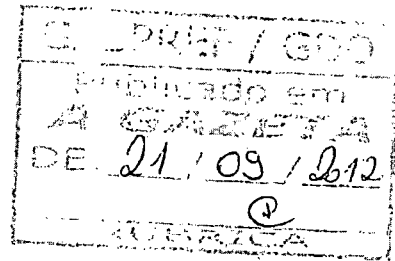 Publicado em
A GAZETA
DE 21 / 09 / 2012
RUBRICA